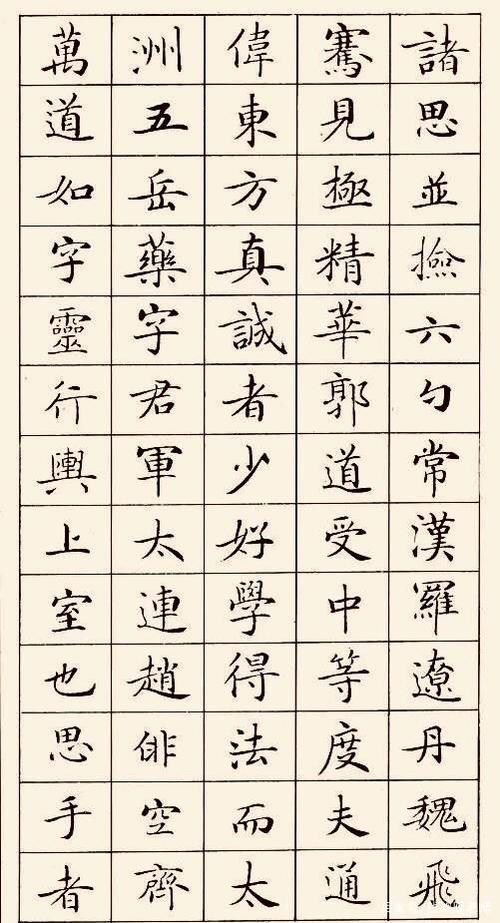 諸思並撿六勺常漢羅遼丹魏飛
騫見極精華郭道受中等度夫通
偉東方真誠者少好學得法而太
洲五岳藥字君軍太連趙俳空齊
萬道如字靈行輿上室也思手者